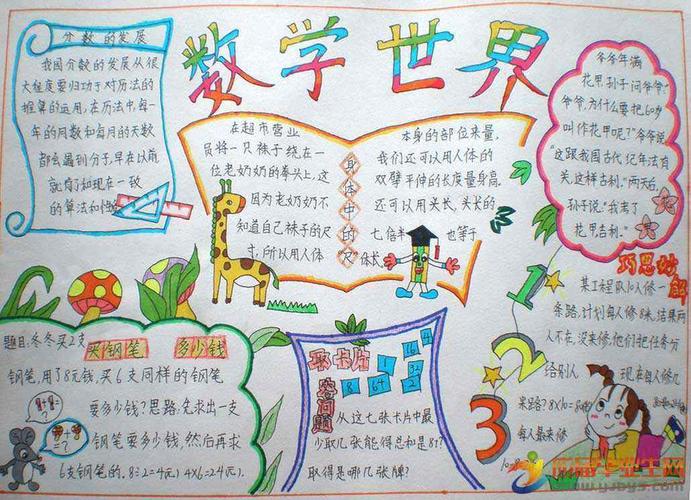 数学世界
分数的发展
我国分数的发展从很
大程度要归功于对历法的
推算的运用,在历法中,每一
年的月数和每月的天数
都会遇到分子,早在以前
就有了如现在一致
的算法和
在超市营业
员将一只袜子绕在一
位老奶奶的拳头上,这
因为老奶奶不
知道自己袜子的尺
寸,所以用人体
身体中的尺
本身的部位来量,
我们还可以用人体的
双臂平伸的长度量身高,
还可以用头长,头长的
七倍半 也等于
体长
爷爷年满
花甲,孙子问爷爷:"
爷爷,为什么要把60岁
叫作花甲呢?"爷爷说:
"这跟我国古代纪年法有
关,这样吉利。"两天后,
孙子说:"我来了
花甲吉利。"
题目:冬冬买2支
买钢笔 多少钱
钢笔,用了8元钱,买6支同样的钢笔
要多少钱?思路:先求出一支
钢笔要多少钱,然后再求
6支钢笔的。8÷2=4(元) 4×6=24(元).
取卡片
答问题
1
2
4
8
16
32
64
从这七张卡片中最
少取几张能得总和是87?
取得是哪几张牌?
1
2
3
巧思妙解
某工程队10人修一
条路,计划每人修8米,结果两
人不在,没来修,他们把任务分
给别人 现在每人修几
米路?8×10=80
每人最来修
10-2